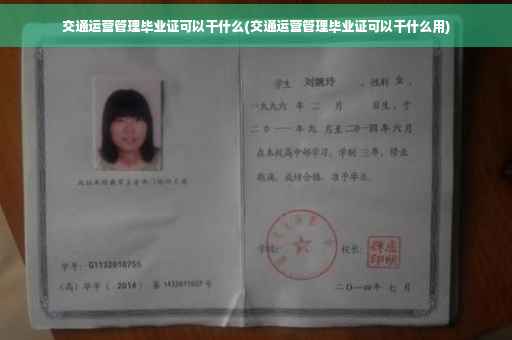 交通运营管理毕业证可以干什么(交通运营管理毕业证可以干什么用)
学生 刘婉玲 ，性别 女 ，
一九九六 年 二 月 日生，于
二〇一一年九 月至二〇一四年六月
在本校高中部学习，学制 三年，修业
期满，成绩合格，准予毕业。
学校：
校长：
学号：G1132010755
（高）毕字（ 2014 ）第 1432011607 号
二〇一四年 七 月